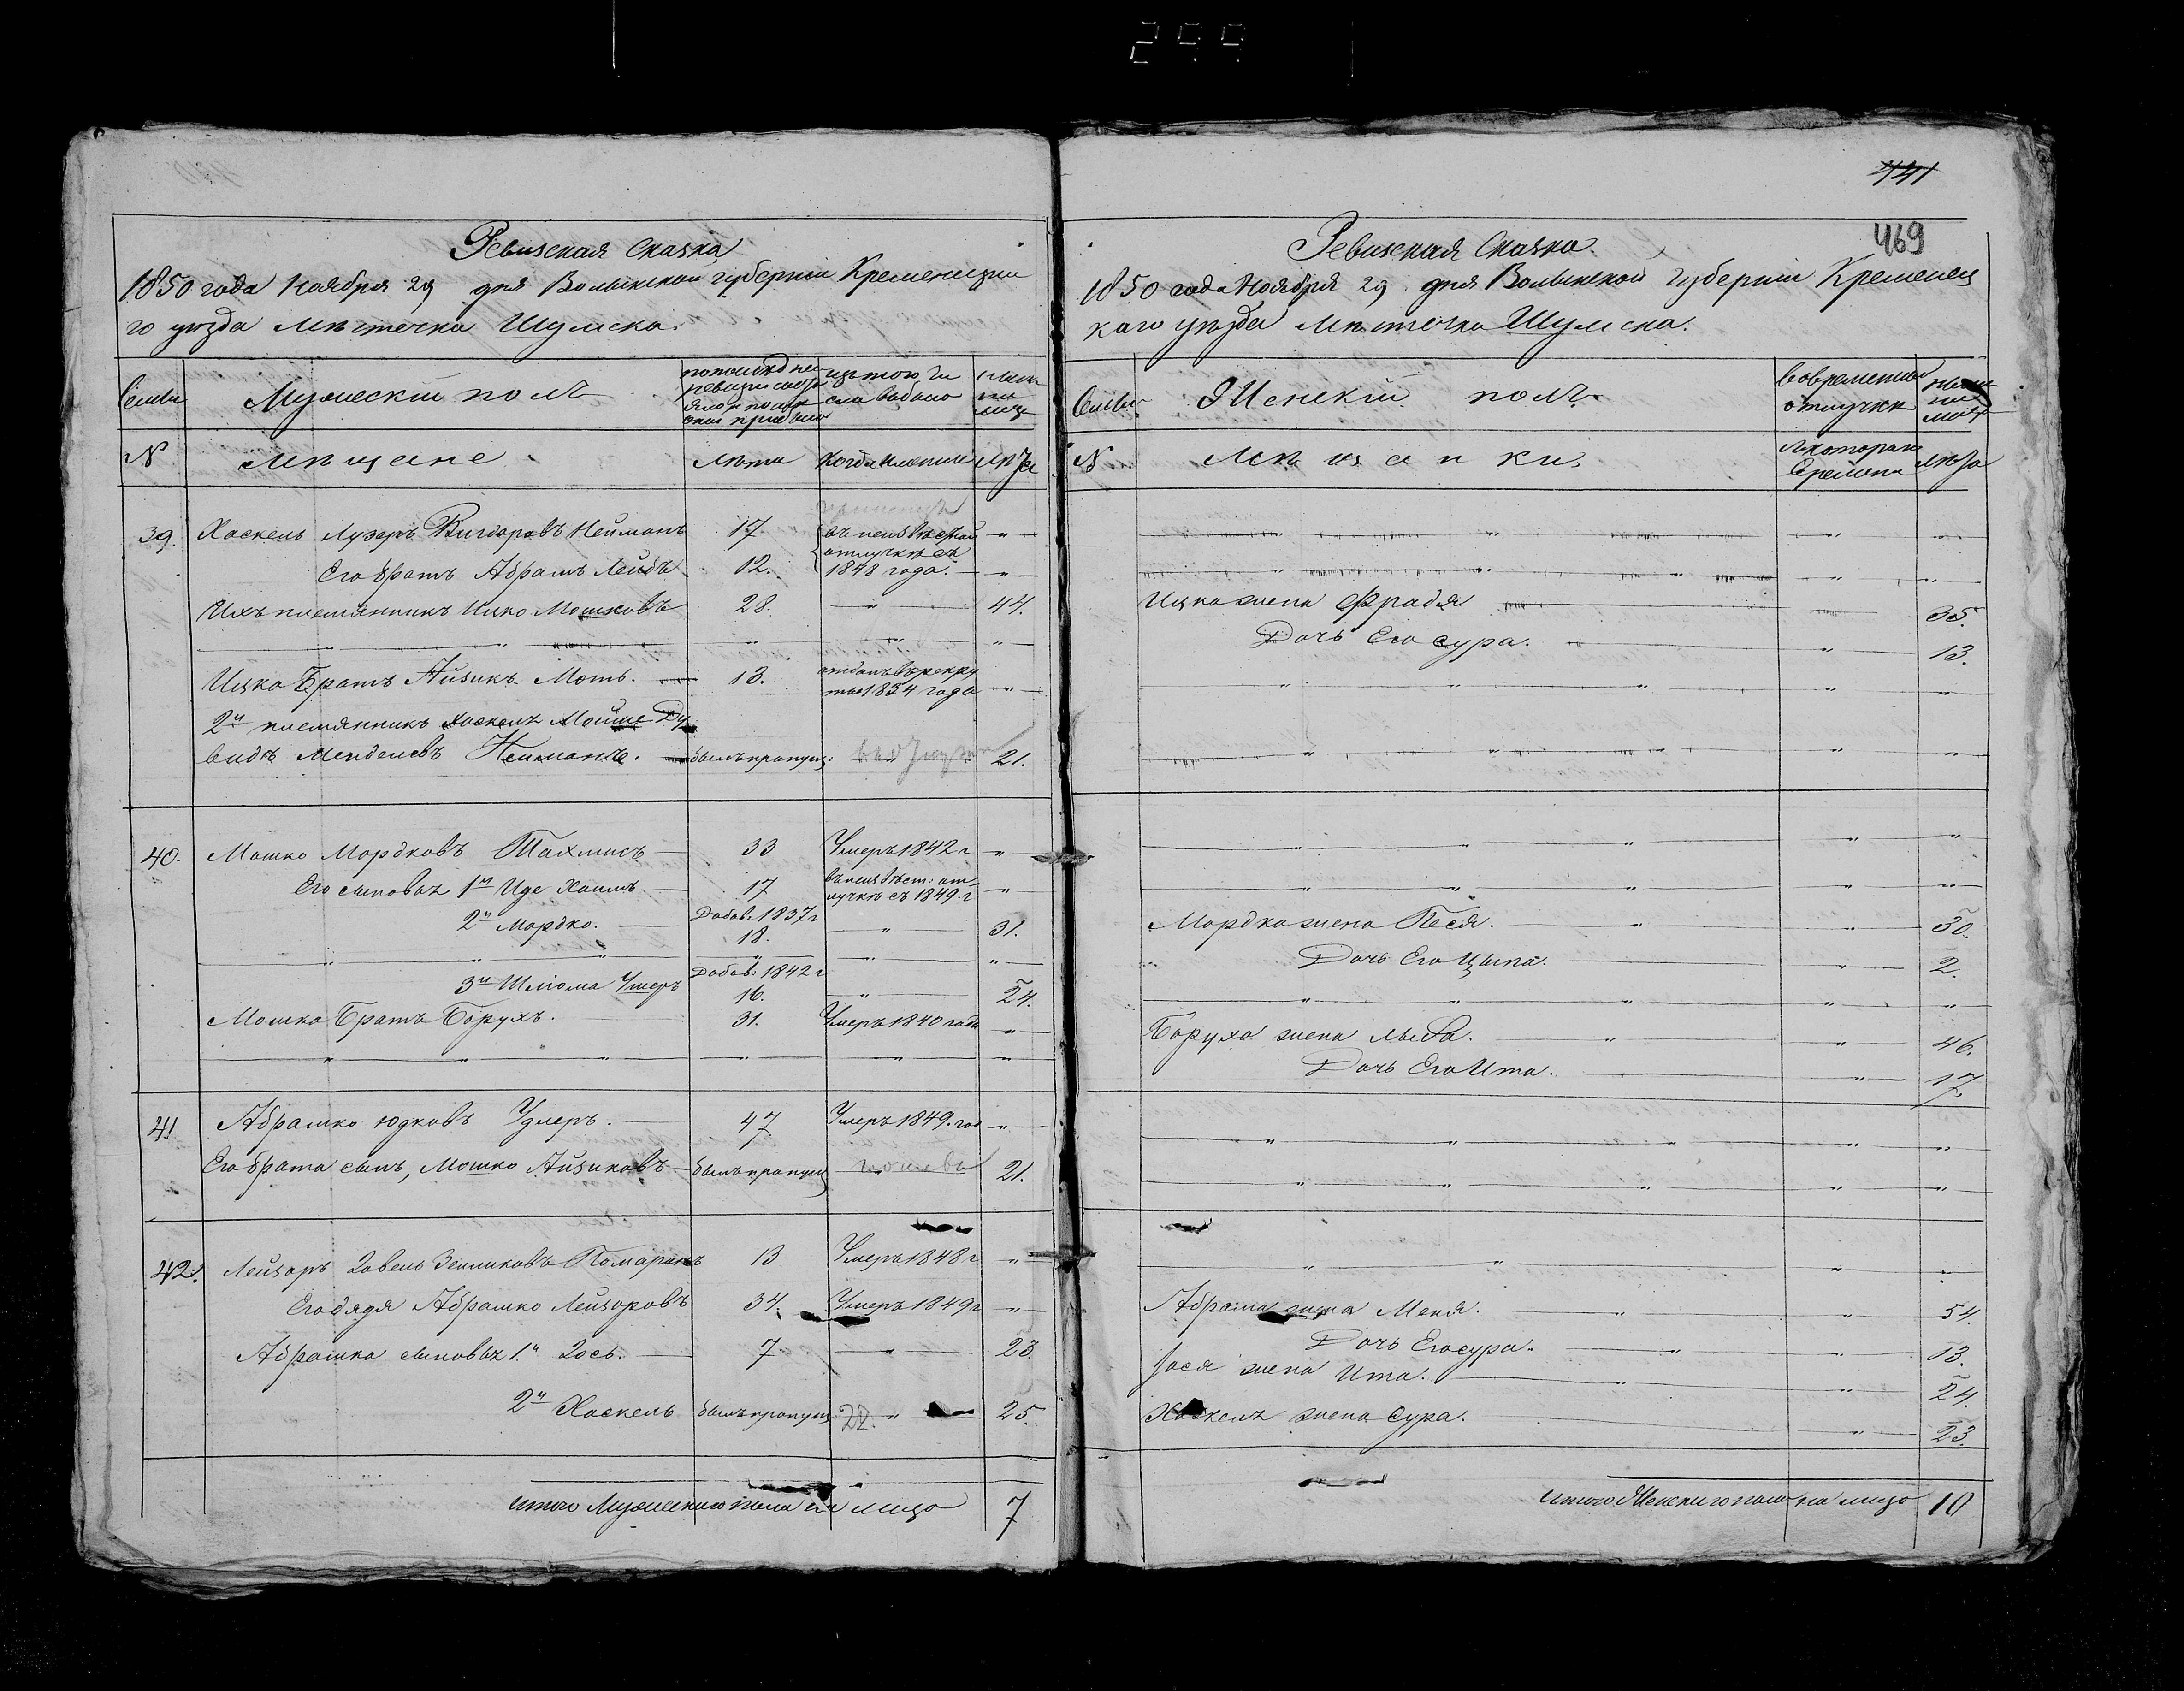 299
Ревизская Сказка
1850 года Ноября 29 дня Волынской губернии Кременецка
го уезда Местечка Шумска.
Семьи
Мужеский полъ
изъ того чи
сла выбыло
N
Мещане
Лета
Когда именно
Лета
39. Хаскель Лузеръ Вигдоровъ Нейманъ 17. въ неизвестной „
отлучке съ
Его братъ Абрамъ Лейбъ 12. 1848 года. „
Ихъ племянникъ Ицко Мошковъ 28. „ 44.
„ „ „ „
Ицка Братъ Айзикъ Моть. 13. отданъ въ рекру „
ты 1834 года
2й племянникъ Хаскеля Мойше Ду
видъ Менделевъ Нейманъ. былъ пропущ: 21.
40. Мошко Мордковъ 33 Умеръ 1842 г „
Его сыновья 1й Иде Хаимъ 17 въ неизвест: от „
лучке съ 1849 г
2й Мордко. Добав. 1837 г
18. „ 31.
„ „ „ „ „ „
3й Шлiома Умеръ Добав: 1842 г
16. „ 24.
Мошка Братъ Борухъ. 31. Умеръ 1840 года „
„ „ „ „ „ „
41 Абрашко Юдковъ 47 Умеръ 1849. год „
Его брата сынъ, Мошко Айзиковъ былъ пропущ 21.
42. Лейзоръ Зейликовъ 13 Умеръ 1848 г „
Его дядя Абрашко Лейзоровъ 34. Умеръ 1849 г „
Абрашка сыновья 1й Зось. 7 „ 23
2й Хаскель былъ пропущ 22. „ 25.
Итого Мужескаго пола на лицо 7
441
469
Ревизская Сказка.
1850 года Ноября 29 дня Волынской губернии Кременец
каго уезда Местечка Шумска.
Семьи
Женскiй полъ.
Во временной
отлучки
N
Мещанки.
Съ котораго
Времени
Лета
„ „ „
„ „ „ „
Ицка жена Фрадя 35.
Дочь Его Сура. „ 13.
„ „ „ „ „
„ „ „ „
„ „ „ „
„ „ „ „ „
Мордка жена Песя. „ „ 30.
Дочь Его Цыпа. „ 2.
„ „ „ „ „
Боруха жена „ „ 46.
Дочь Его Ита. „ 17
„ „ „ „ „
„ „ „ „ „
„ „ „ „
Абрашка жена Меня. „ „ 54.
Дочь Его Сура. „ „ 13.
Зося жена Ита. „ „ 24.
Хаскеля жена Сура. „ 23.
Итого Женскаго пола на лицо 10